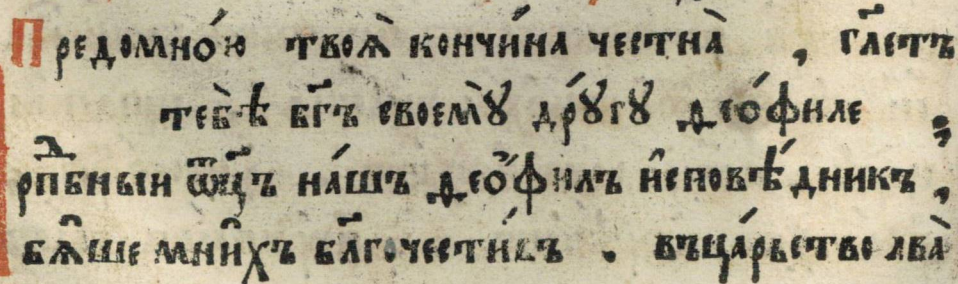 Предомно́ю твоѧ̀ кончи́на честна̀ , гл҃етъ
тебѣ̀ бг҃ъ своемꙋ̀ дрꙋ́гꙋ ѳео́филе ;
рпⷣбныи ѿц҃ъ на́шъ ѳео́филъ и҆сповѣ́дникъ ,
бѧ́ше мни́хъ бл҃гочести́въ . въца́рьство лва̀